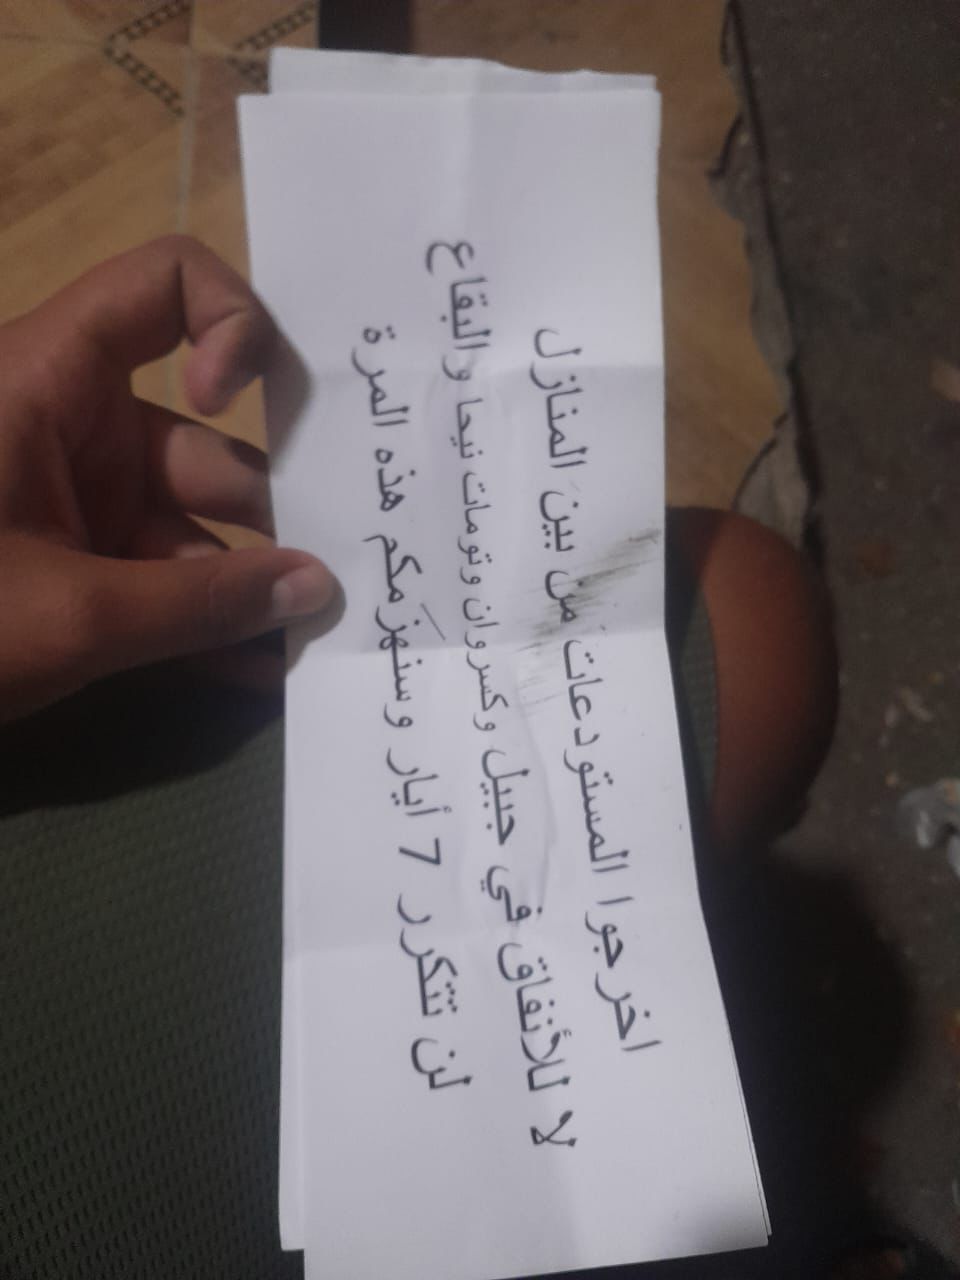 اخرجوا المستودعات من بين المنازل
لا للأنفاق في جبيل وكسروان وتومات نيحا والبقاع
لن تتكرر 7 أيار وسنهزمكم هذه المرة